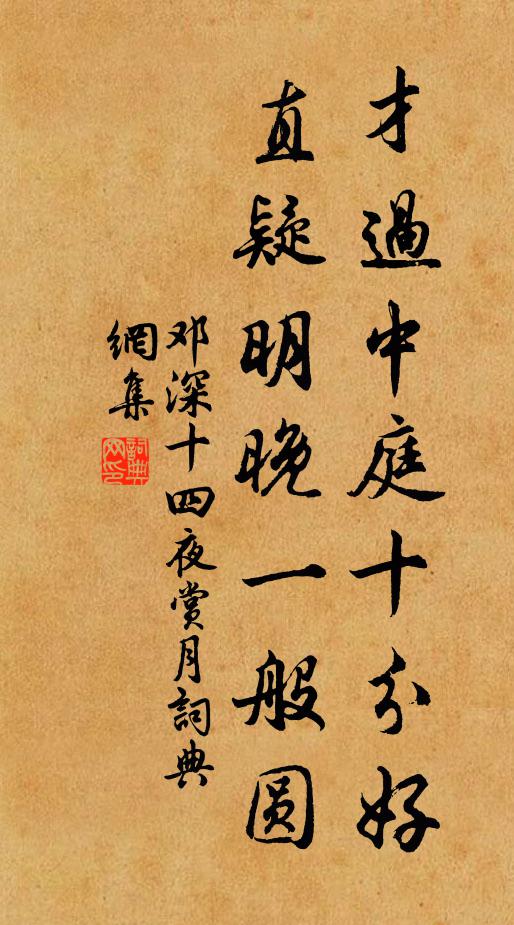 才過中庭十分好
直疑明晚一般圆
邓深十四夜賞月詞典
網集
詞典
网印